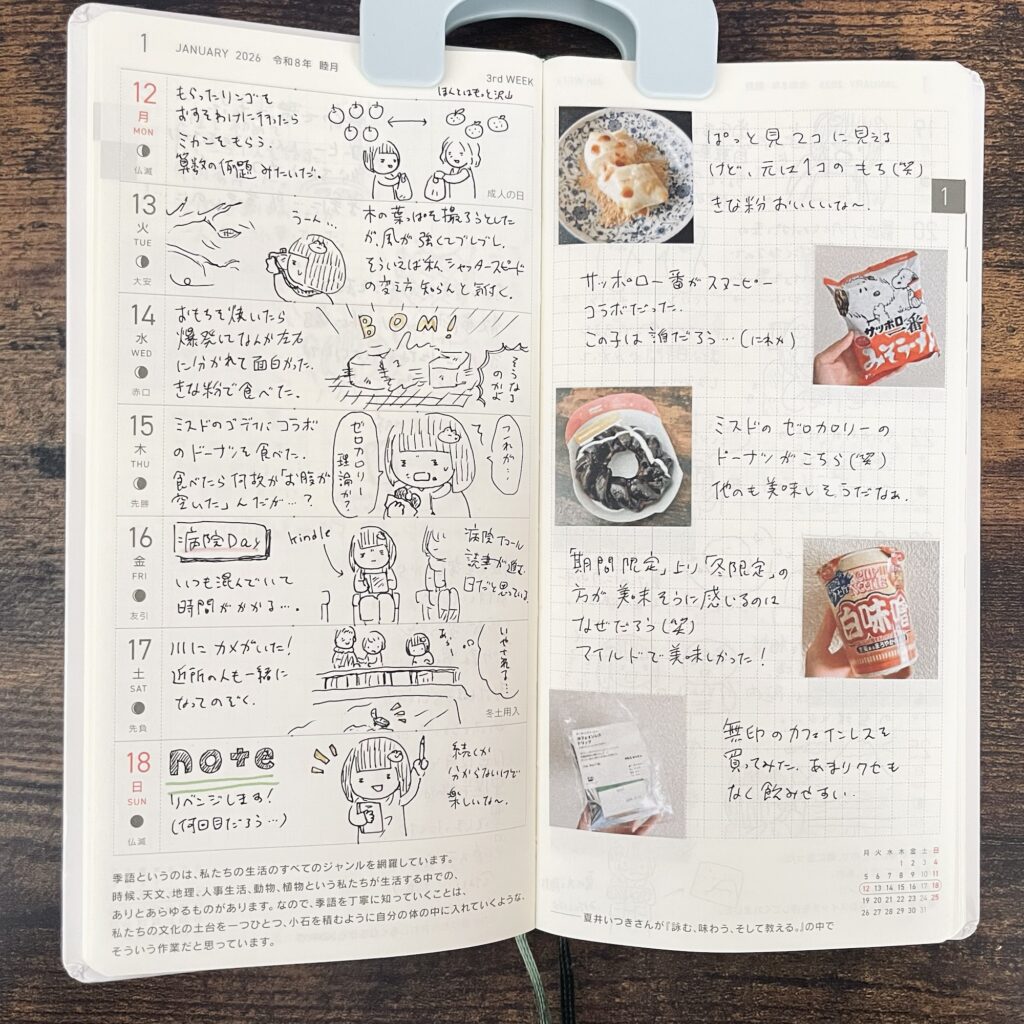 1 JANUARY 2026 令和8年 睦月
3rd WEEK
12
月
MON
仏滅
もらったリンゴを
おすそわけに行ったら
ミカンをもらう。
算数の例題みたいだ。
ほんとはもっと沢山
成人の日
13
火
TUE
大安
うーん…
木の葉っぱを撮ろうとした
が、風が強くてブレブレ。
そういえば私シャッタースピード
の変え方知らんと気付く。
14
水
WED
赤口
おもちを焼いたら
爆発してなんか左右
に分かれて面白かった。
きな粉で食べた。
BOM!
そうなる
のかよ
15
木
THU
先勝
ミスドのゴディバコラボ
のドーナツを食べた。
食べたら何故か「お腹が
空いた」んだが…?
ゼロカロリー
理論か?
これが…
そ
16
金
FRI
友引
病院Day
いつも混んでいて
時間がかかる…。
kindle
病院イコール
読書が進む
日だと思っている。
17
土
SAT
先負
川にカメがいた!
近所の人も一緒に
なってのぞく。
あぁ…
冬土用入
18
日
SUN
仏滅
note
リベンジします!
(何回目だろう…)
続くか
分からないけど
楽しいな〜。
季語というのは、私たちの生活のすべてのジャンルを網羅しています。
時候、天文、地理、人事生活、動物、植物という私たちが生活する中での、
ありとあらゆるものがあります。なので、季語を丁寧に知っていくことは、
私たちの文化の土台を一つひとつ、小石を積むように自分の体の中に入れていくような、
そういう作業だと思っています。
ぱっと見2コに見える
けど、元は1コのもち(笑)
きな粉おいしいな〜。
1
サッポロ一番がスヌーピー
コラボだった。
この子は誰だろう…(にわか)
サッポロ一番
みそラーメン
ミスドのゼロカロリーの
ドーナツがこちら(笑)
他のも美味しそうだなぁ。
「期間限定」より「冬限定」の
方が美味そうに感じるのは
なぜだろう(笑)
マイルドで美味しかった!
白味噌
無印のカフェインレスを
買ってみた。あまりクセも
なく飲みやすい。
月 火 水 木 金 土 日
1 2 3 4
5 6 7 8 9 10 11
12 13 14 15 16 17 18
19 20 21 22 23 24 25
26 27 28 29 30 31
——夏井いつきさんが『詠む、味わう、そして教える。』の中で